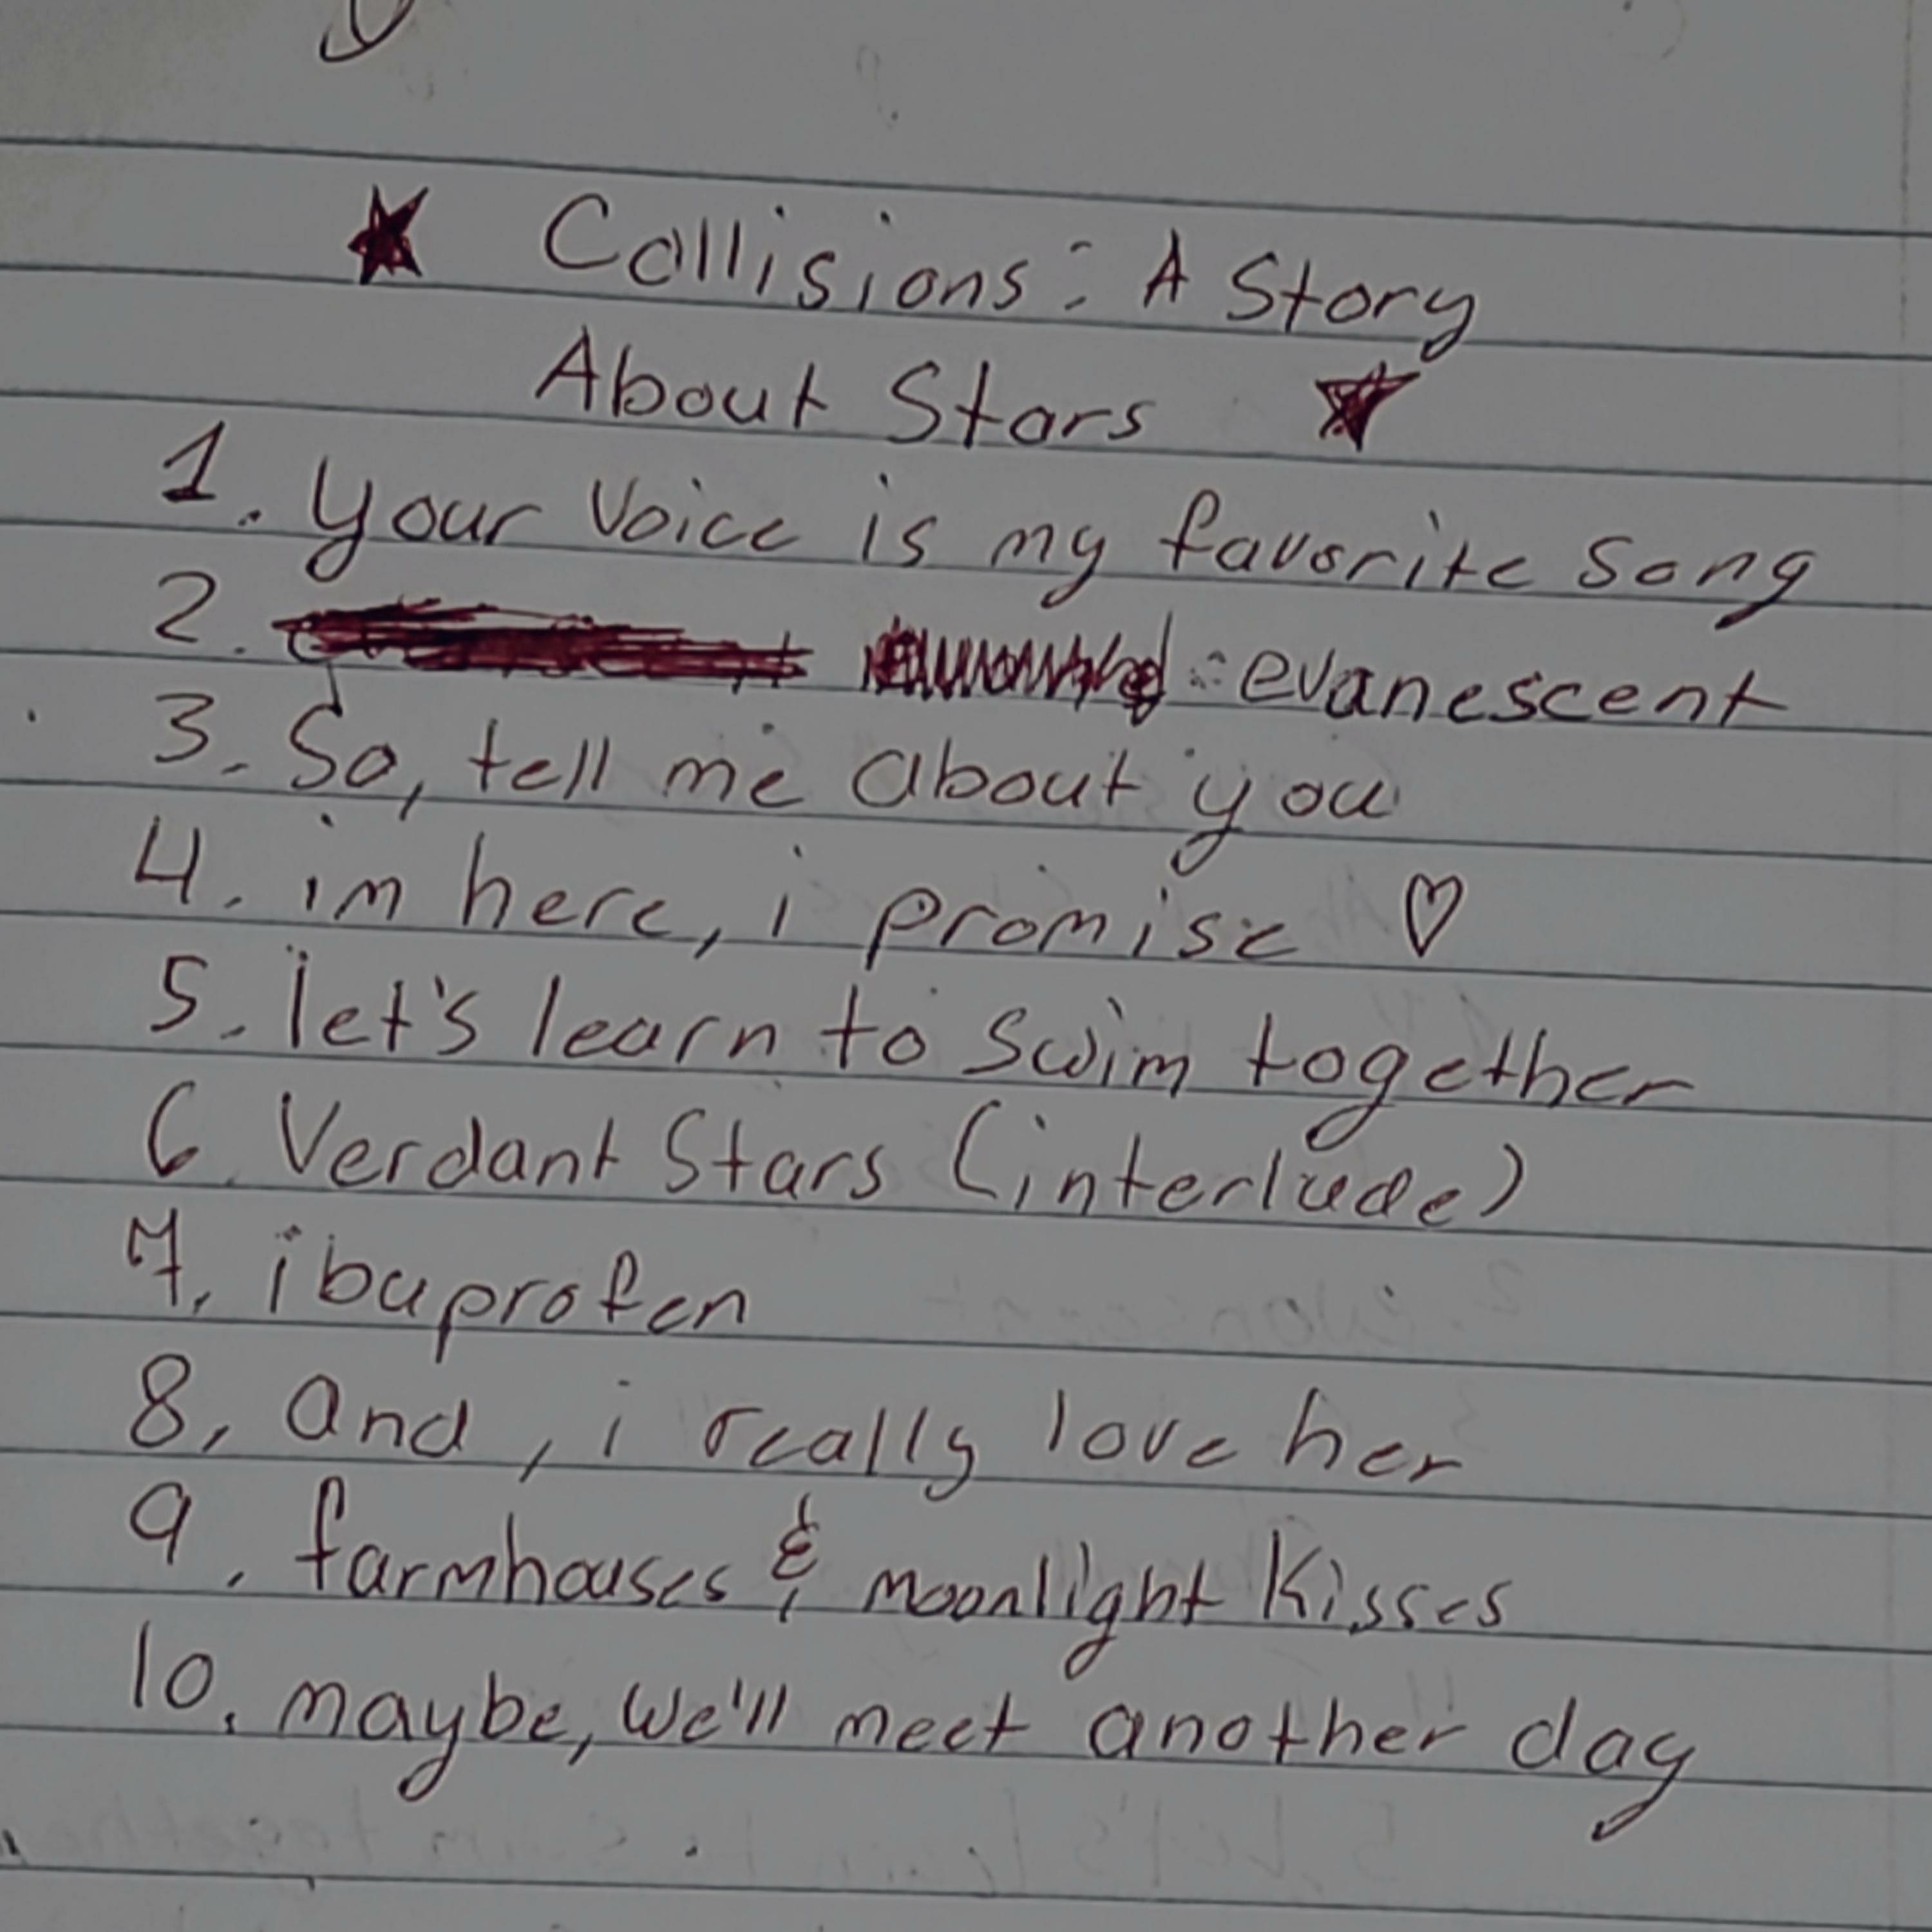 ★ Collisions: A Story
About Stars ★
1. your voice is my favorite song
2. : evanescent
3. So, tell me about you
4. im here, i promise ♡
5. let's learn to swim together
6. Verdant Stars (interlude)
7. ibuprofen
8, and, i really love her
9. farmhouses & moonlight kisses
10. maybe, we'll meet another day